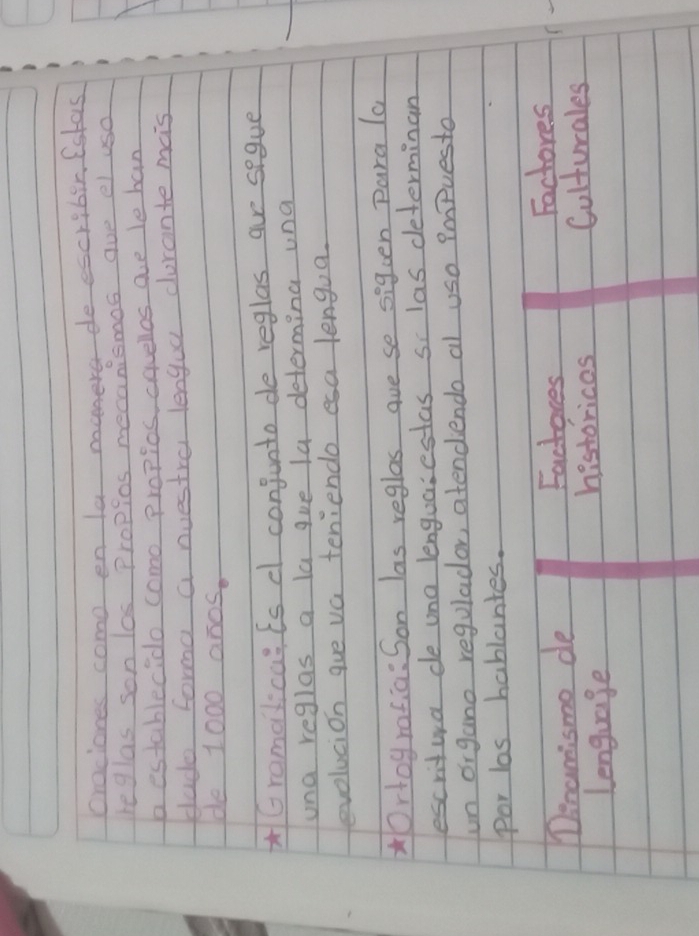 Oraciones como en la manera de escribir. Estas
reglas son los propios mecanismos que el uso
a establecido como propios, aquellos que le han
dado forma a nuestra lengua durante más
de 1000 años.
★Gramática: Es el conjunto de reglas que sigue
una reglas a la que la determina una
evolución que va teniendo esa lengua.
★Ortografía: Son las reglas que se siguen para la
escritura de una lengua; estas si las determinan
un órgano regulador, atendiendo al uso impuesto
por los hablantes.
Dinamismo de
lenguaje
Factores
históricos
Factores
Culturales